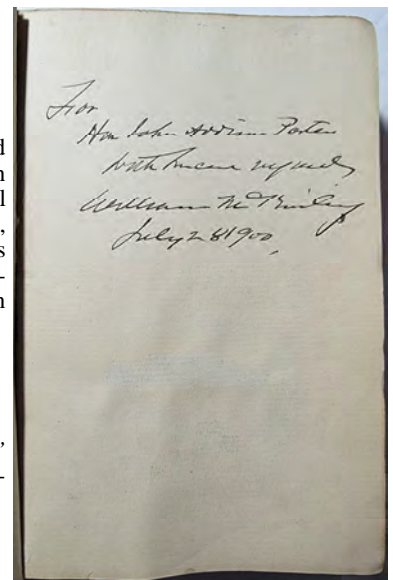 d
n
l
,
s
-
n
,
-
For
Hon John Addison Porter
with sincere regards
William McKinley
July 28 1900,